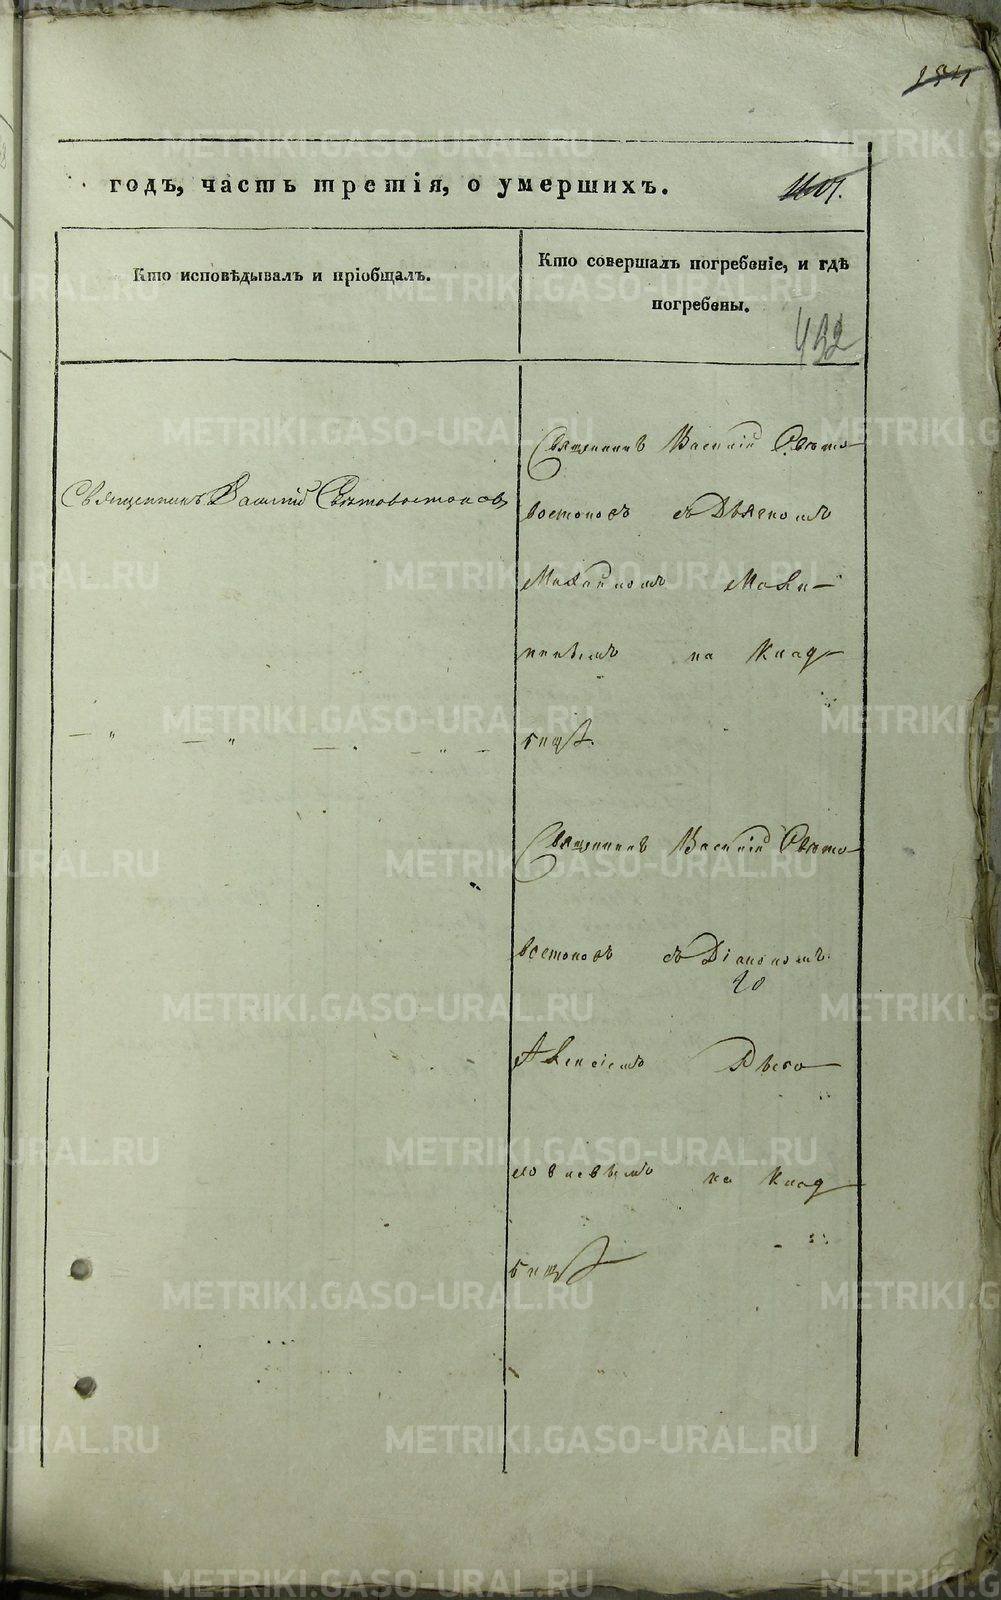 годъ, часть третія, о умершихъ.
Кто исповѣдывалъ и пріобщалъ.
Кто совершалъ погребеніе, и гдѣ
погребены.
432
Священникъ Василій Свѣтовостоковъ
Священникъ Василій Свѣто-
востоковъ съ Дьячкомъ
Михаиломъ
на Клад-
бищѣ.
Священникъ Василій Свѣто-
востоковъ съ Діакономъ
Алексіемъ
на Клад-
бищѣ
METRIKI.GASO-URAL.RU